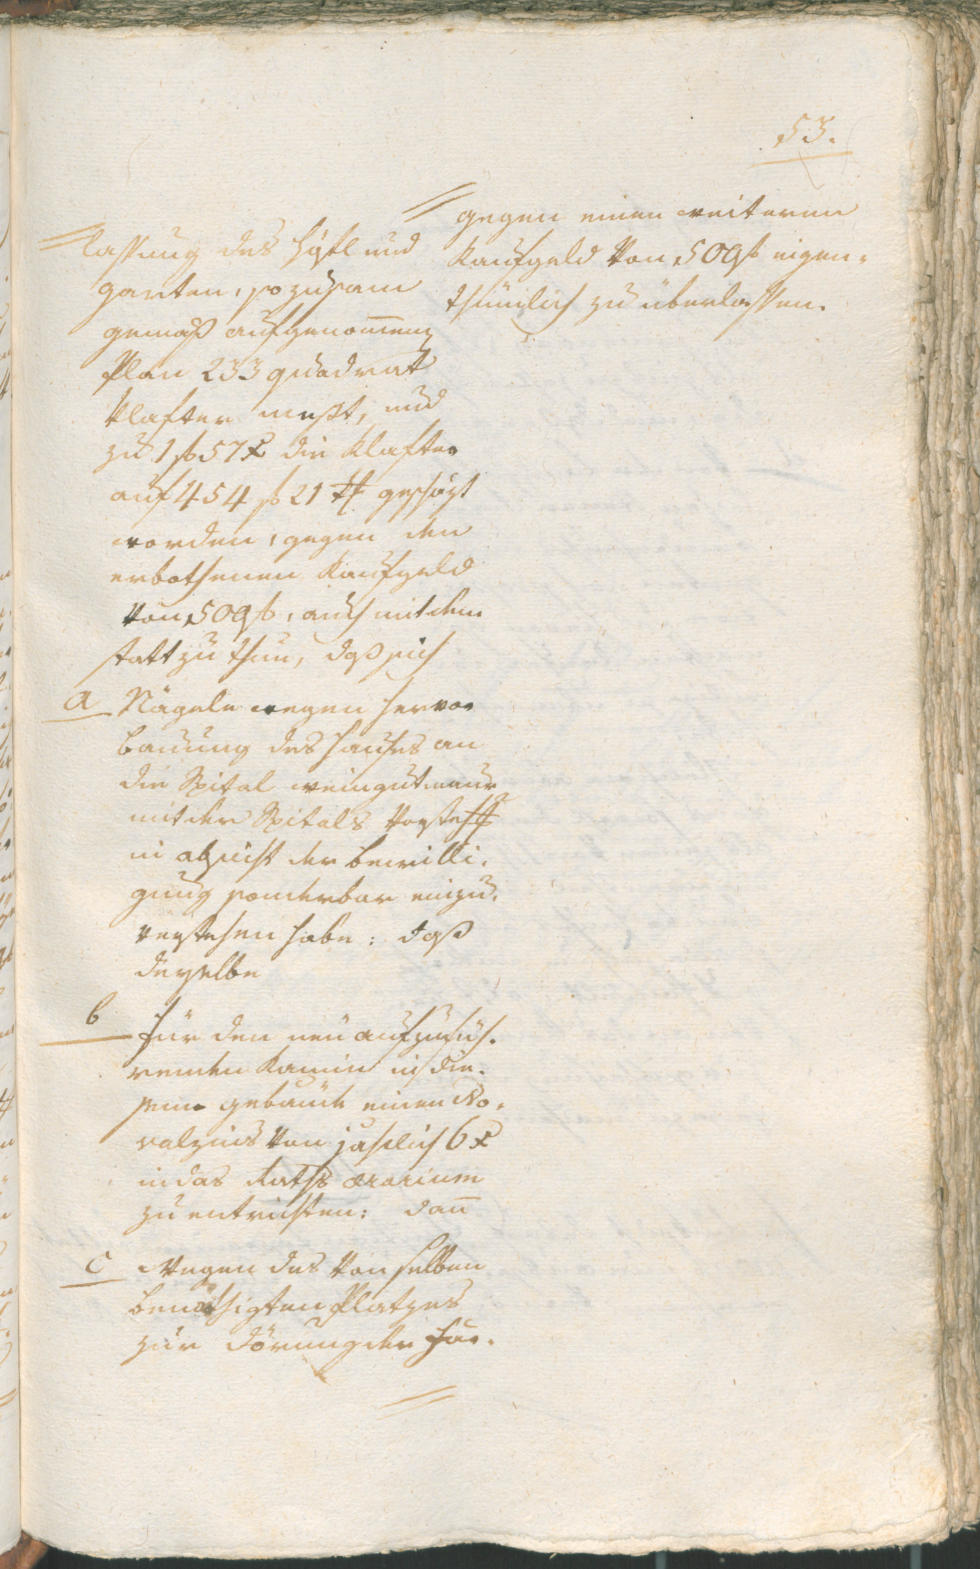 53.
lassung des Höfl und
garten, so zusam̅
gemäß aufgenom̅enen
Plan 233 quadrat
klafter meßt, und
zu 1 f 57 x die Klafter
auf 454 f 21 x geschäzt
worden, gegen den
erbothenen Kaufgeld
von 509 f, auch mit dem
statt zu thun, daß sich
a Nägele wegen hervor
bauung des Hauses an
die Spital weingutmaur
mit der Spitals
in absicht der bewilli-
gung sonderbar einzu-
verstehen habe: daß
derselbe
b für den neu aufzufüh-
renden Kamin in die-
sem gebäude einen No-
valzins von jährlich 6 x
in das Raths ærarium
zu entrichten: dan̅
c wegen des von selben
benöthigten Platzes
zur der Für-
gegen einen weiteren
Kaufgeld von 509 f eigen-
thümlich zu überlassen.